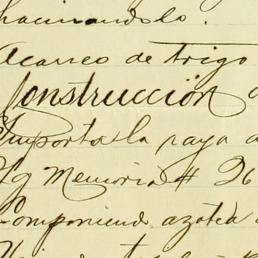 hacinandolo.
Acarreo de trigo
Construcción
Importa la raya
Sg Memoria # 26
Componiend azotea